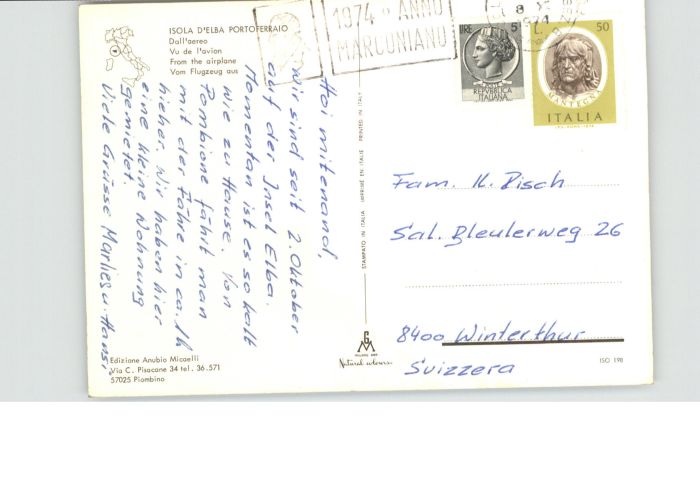 ISOLA D'ELBA PORTOFERRAIO
Dall'aereo
Vu de l'avion
From the airplane
Vom Flugzeug aus
1974 ANNO
MARCONIANO
8
1974
LIRE 5
REPVBBLICA
ITALIANA
L. 50
MANTEGNA
ITALIA
Hoi mitenand,
wir sind seit 2. Oktober
auf der Insel Elba.
Momentan ist es so kalt
wie zu Hause. Von
Pombione fährt man
mit der Fähre in ca. 1h
hieher. Wir haben hier
eine kleine Wohnung
gemietet.
Viele Grüsse Marlies u. Hansi
STAMPATO IN ITALIA IMPRIMÉ EN ITALIE PRINTED IN ITALY
Fam. K. Pisch
Sal. Bleulerweg 26
8400 Winterthur
Suizzera
Edizione Anubio Micaelli
Via C. Pisacane 34 tel. 36.571
57025 Piombino
Natural colours
ISO 198